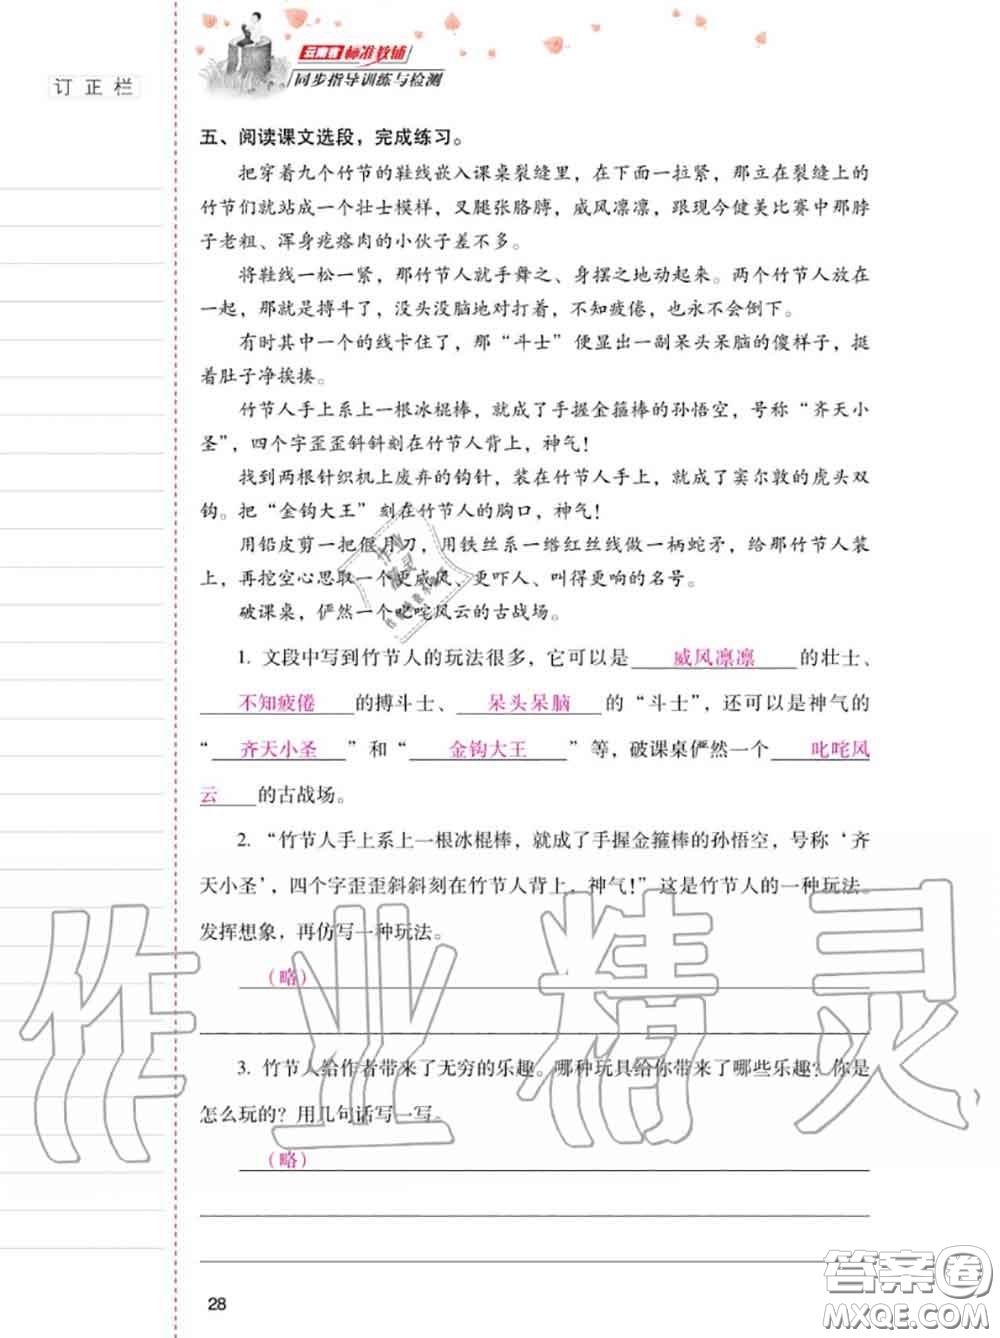 云南省标准教辅
同步指导训练与检测
订正栏
五、阅读课文选段，完成练习。
把穿着九个竹节的鞋线嵌入课桌裂缝里，在下面一拉紧，那立在裂缝上的
竹节们就站成一个壮士模样，叉腿张胳膊，威风凛凛，跟现今健美比赛中那脖
子老粗、浑身疙瘩肉的小伙子差不多。
将鞋线一松一紧，那竹节人就手舞之、身摆之地动起来。两个竹节人放在
一起，那就是搏斗了，没头没脑地对打着，不知疲倦，也永不会倒下。
有时其中一个的线卡住了，那“斗士”便显出一副呆头呆脑的傻样子，挺
着肚子净挨揍。
竹节人手上系上一根冰棍棒，就成了手握金箍棒的孙悟空，号称“齐天小
圣”，四个字歪歪斜斜刻在竹节人背上，神气！
找到两根针织机上废弃的钩针，装在竹节人手上，就成了窦尔敦的虎头双
钩。把“金钩大王”刻在竹节人的胸口，神气！
用铅皮剪一把偃月刀，用铁丝系一绺红丝线做一柄蛇矛，给那竹节人装
上，再挖空心思取一个更威风、更吓人、叫得更响的名号。
破课桌，俨然一个叱咤风云的古战场。
1. 文段中写到竹节人的玩法很多，它可以是 威风凛凛 的壮士、
不知疲倦 的搏斗士、 呆头呆脑 的“斗士”，还可以是神气的
“ 齐天小圣 ”和“ 金钩大王 ”等，破课桌俨然一个 叱咤风
云 的古战场。
2. “竹节人手上系上一根冰棍棒，就成了手握金箍棒的孙悟空，号称‘齐
天小圣’，四个字歪歪斜斜刻在竹节人背上，神气！”这是竹节人的一种玩法。
发挥想象，再仿写一种玩法。
（略）
3. 竹节人给作者带来了无穷的乐趣。哪种玩具给你带来了哪些乐趣？你是
怎么玩的？用几句话写一写。
（略）
28
作业精灵
答案卷
MXQE.COM